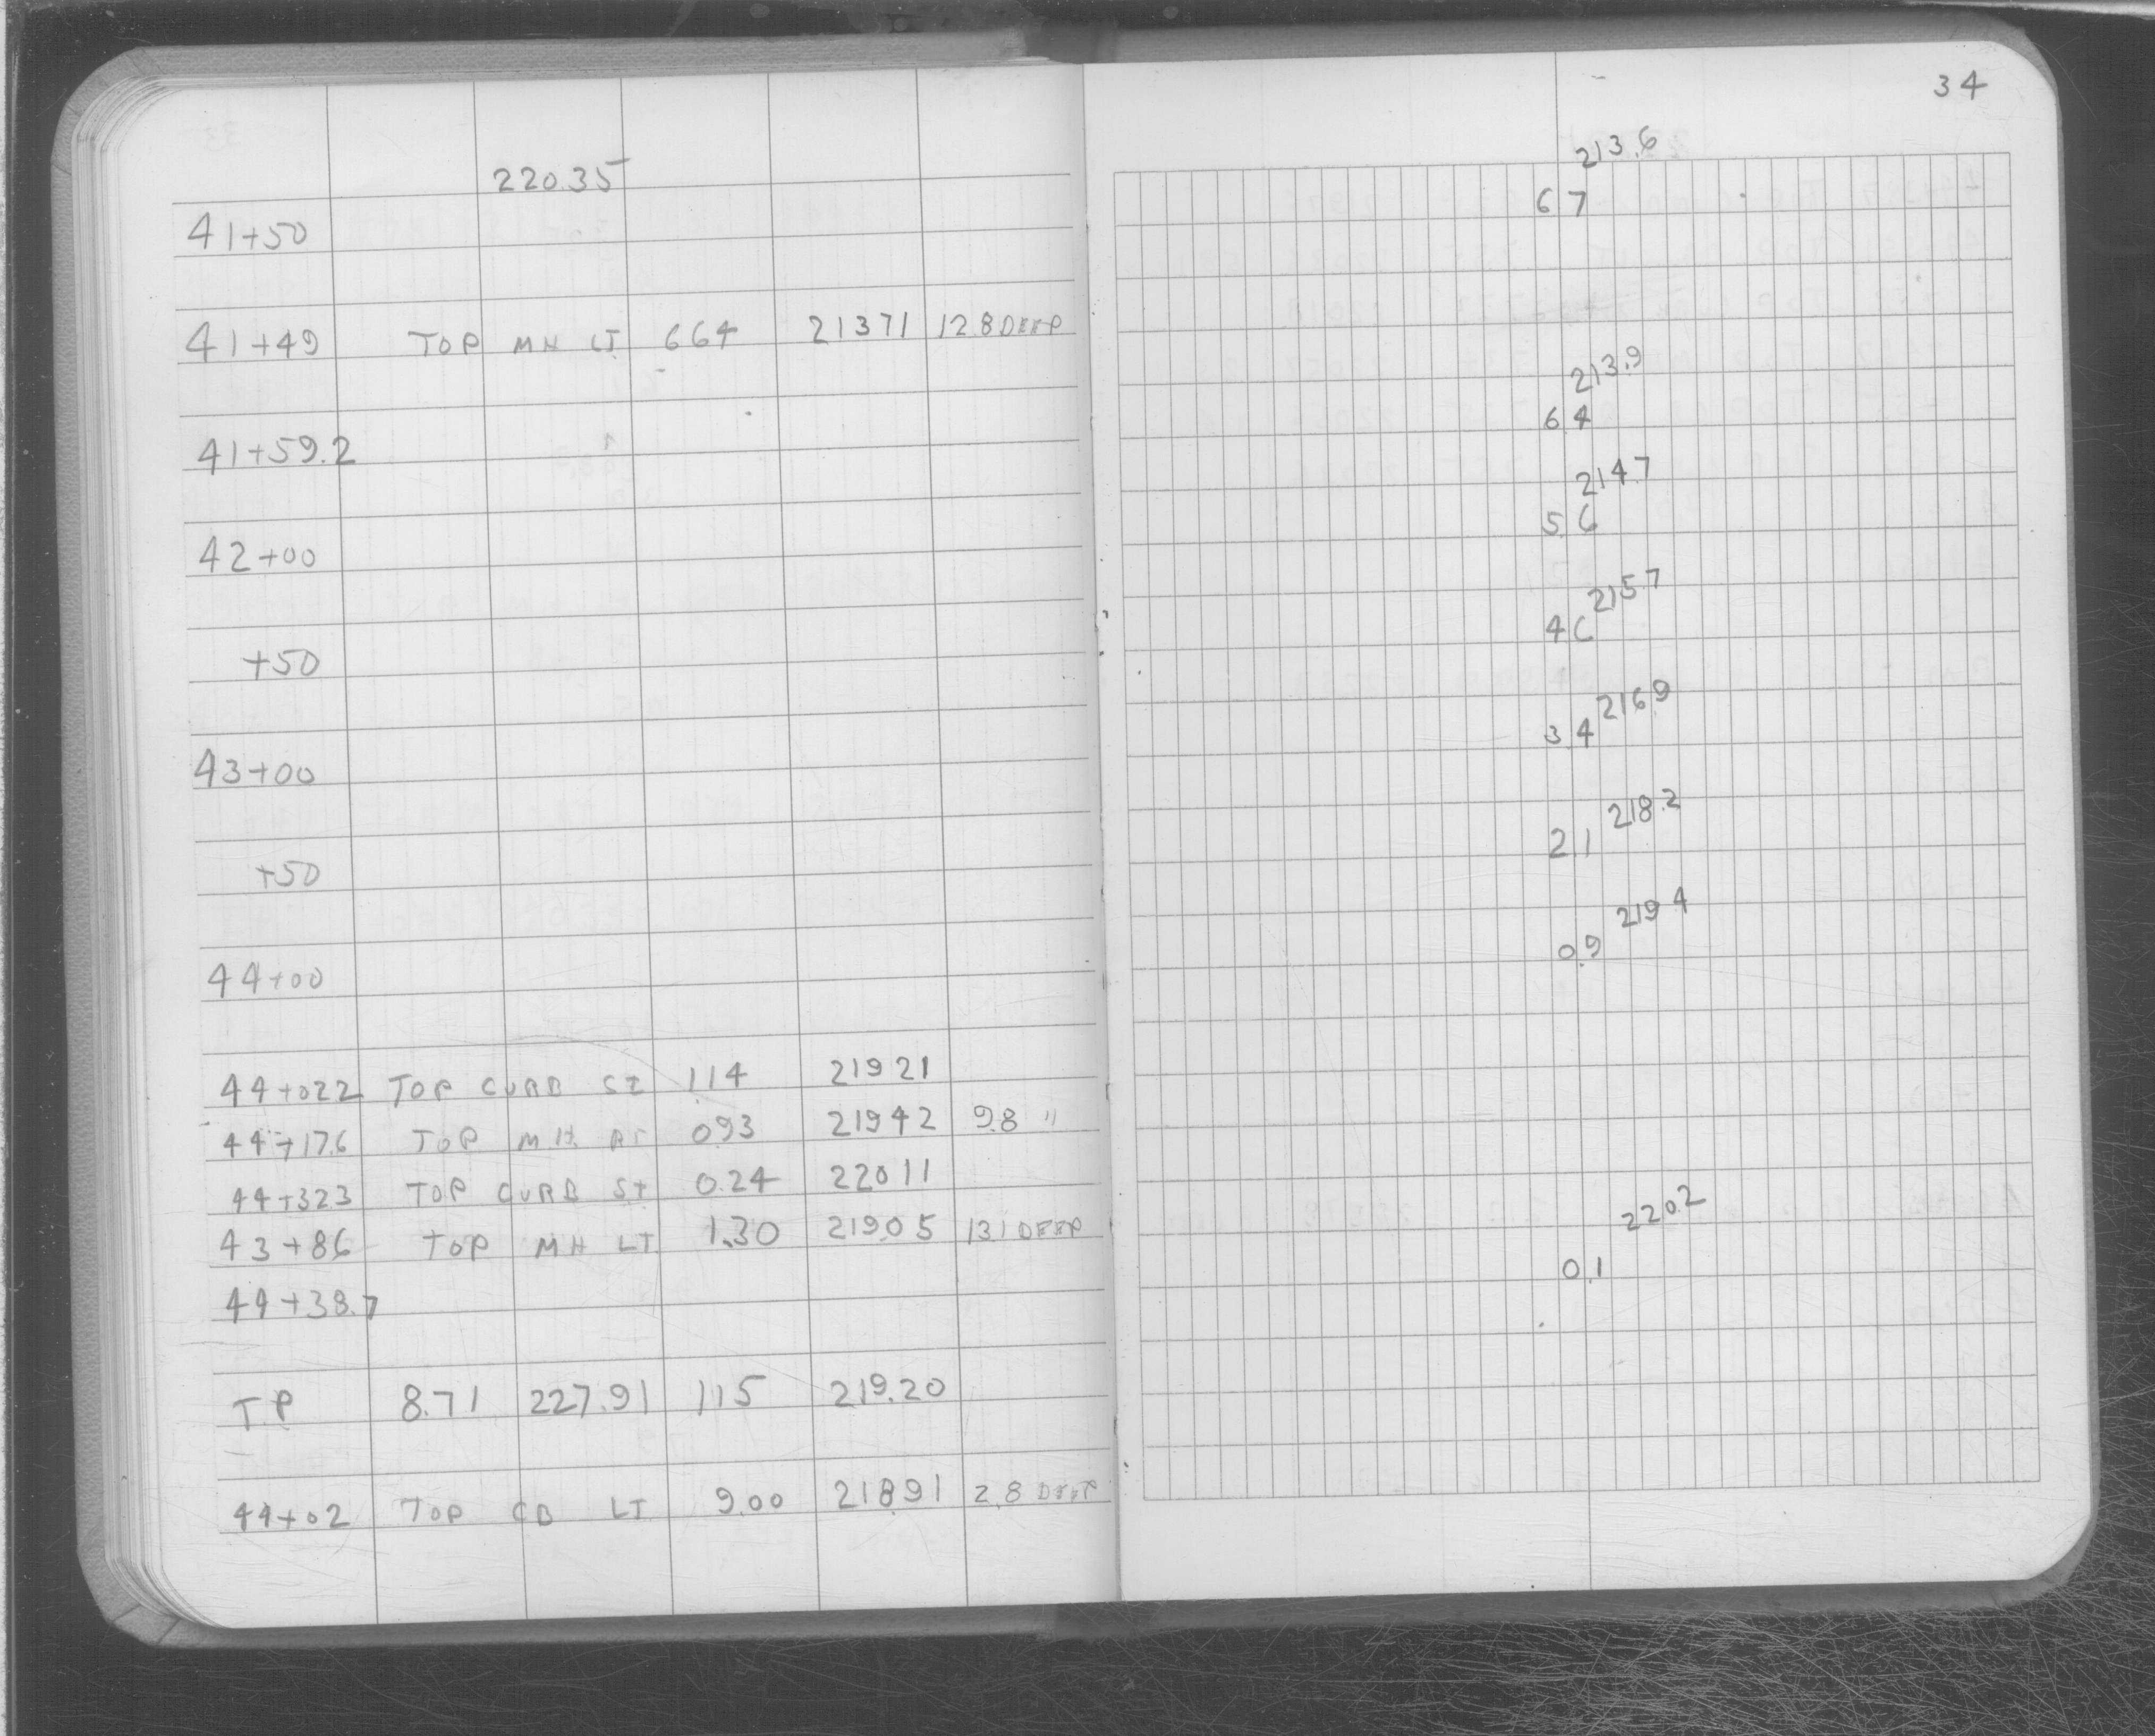 34
220.35
213.6
41+50 6 7
41+49 TOP MH LT 664 21371 12.8 DEEP
213.9
41+59.2 6 4
214.7
42+00 5 6
215.7
+50 4 6
216.9
43+00 3 4
218.2
+50 2 1
219 4
44+00 0.9
44+022 TOP CURB ST 1.14 219 21
44+17.6 TOP M.H. RT 0.93 219 42 9.8 "
44+323 TOP CURB ST 0.24 220 11
43+86 TOP MH LT 1.30 219.05 131 DEEP
220.2
44+38.7 0.1
TP 8.71 227.91 115 219.20
44+02 TOP CB LT 9.00 218.91 2.8 DEEP